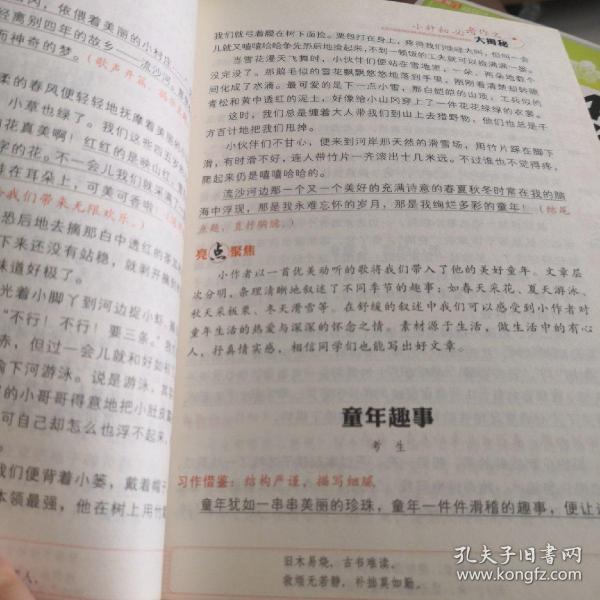 内，依偎着美丽的小村庄
经离别四年的故乡——流沙河。
而神奇的梦。
柔的春风便轻轻地抚摩着美丽的
小草也绿了。我们这些四五岁
的花真美啊！红红的是映山红，
字的花。不一会儿我们就采满了
挂在耳朵上，可美可香啦！
给我们带来无限欢乐。）
恐后地去摘那白中透红的茶
下来还没有站稳，就剥开
味道好极了。
光着小脚丫到河边捉小虾，
“不行！不行！要三条。”
赤，但过一会儿就和好如初
偷下河游泳。说是游泳，其
的小哥哥得意地把小肚皮
可自己却怎么也浮不起来，
我们便背着小篓，戴着帽子
本领最强，他在树上用竹
人。
小升初必考作文
大揭秘
我们就弓着腰在树下面捡。栗包打在身上，疼得我们哇哇大叫，但尚一会
儿就又嘻嘻哈哈争先恐后地捡起来，不到一顿饭的工夫就可以捡满满一篓。
当雪花漫天飞舞时，小伙伴们便站在雪地里，一朵、两朵地数个
没完没了。那鹅毛似的雪花飘飘悠悠地落到手里，刚刚看清楚却转眼
间化成了水滴。最可爱的是下一点小雪，那白皑皑的山顶，工兵似的
青松和黄中透红的泥土，好像给小山冈穿上了一件花花绿绿的衣裳。
这时，我们总是缠着大人带我们到山上去猎野物，他们也总是千
方百计地把我们甩掉。
小伙伴们不甘心，便来到河岸那天然的滑雪场，用竹片踩在脚下
滑，有时滑不好，连人带竹片一齐滚出十几米远。不过谁也不觉得疼，
爬起来仍是嘻嘻哈哈的。
流沙河边那一个又一个美好的充满诗意的春夏秋冬时常在我的脑
海中浮现，那是我永难忘怀的岁月，那是我绚烂多彩的童年！（结尾
点题，直抒胸臆。）
亮点聚焦
小作者以一首优美动听的歌将我们带入了他的美好童年。文章层
次分明，条理清晰地叙述了不同季节的趣事：如春天采花、夏天游泳、
秋天采板栗、冬天滑雪等。在舒缓的叙述中我们可以感受到小作者对
童年生活的热爱与深深的怀念之情。素材源于生活，做生活中的有心
人，抒真情实感，相信同学们也能写出好文章。
童年趣事
考生
习作借鉴：结构严谨，描写细腻
童年犹如一串串美丽的珍珠，童年一件件滑稽的趣事，便让
旧木易烧，古书难读。
救烦无若静，补拙莫如勤。
孔夫子旧书网
www.kongfz.com